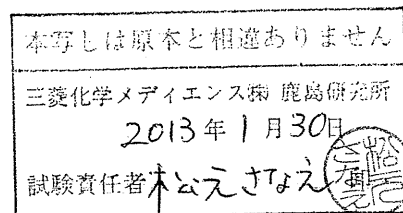 本写しは原本と相違ありません
三菱化学メディエンス㈱ 鹿島研究所
2013年1月30日
試験責任者 松元さなえ 印